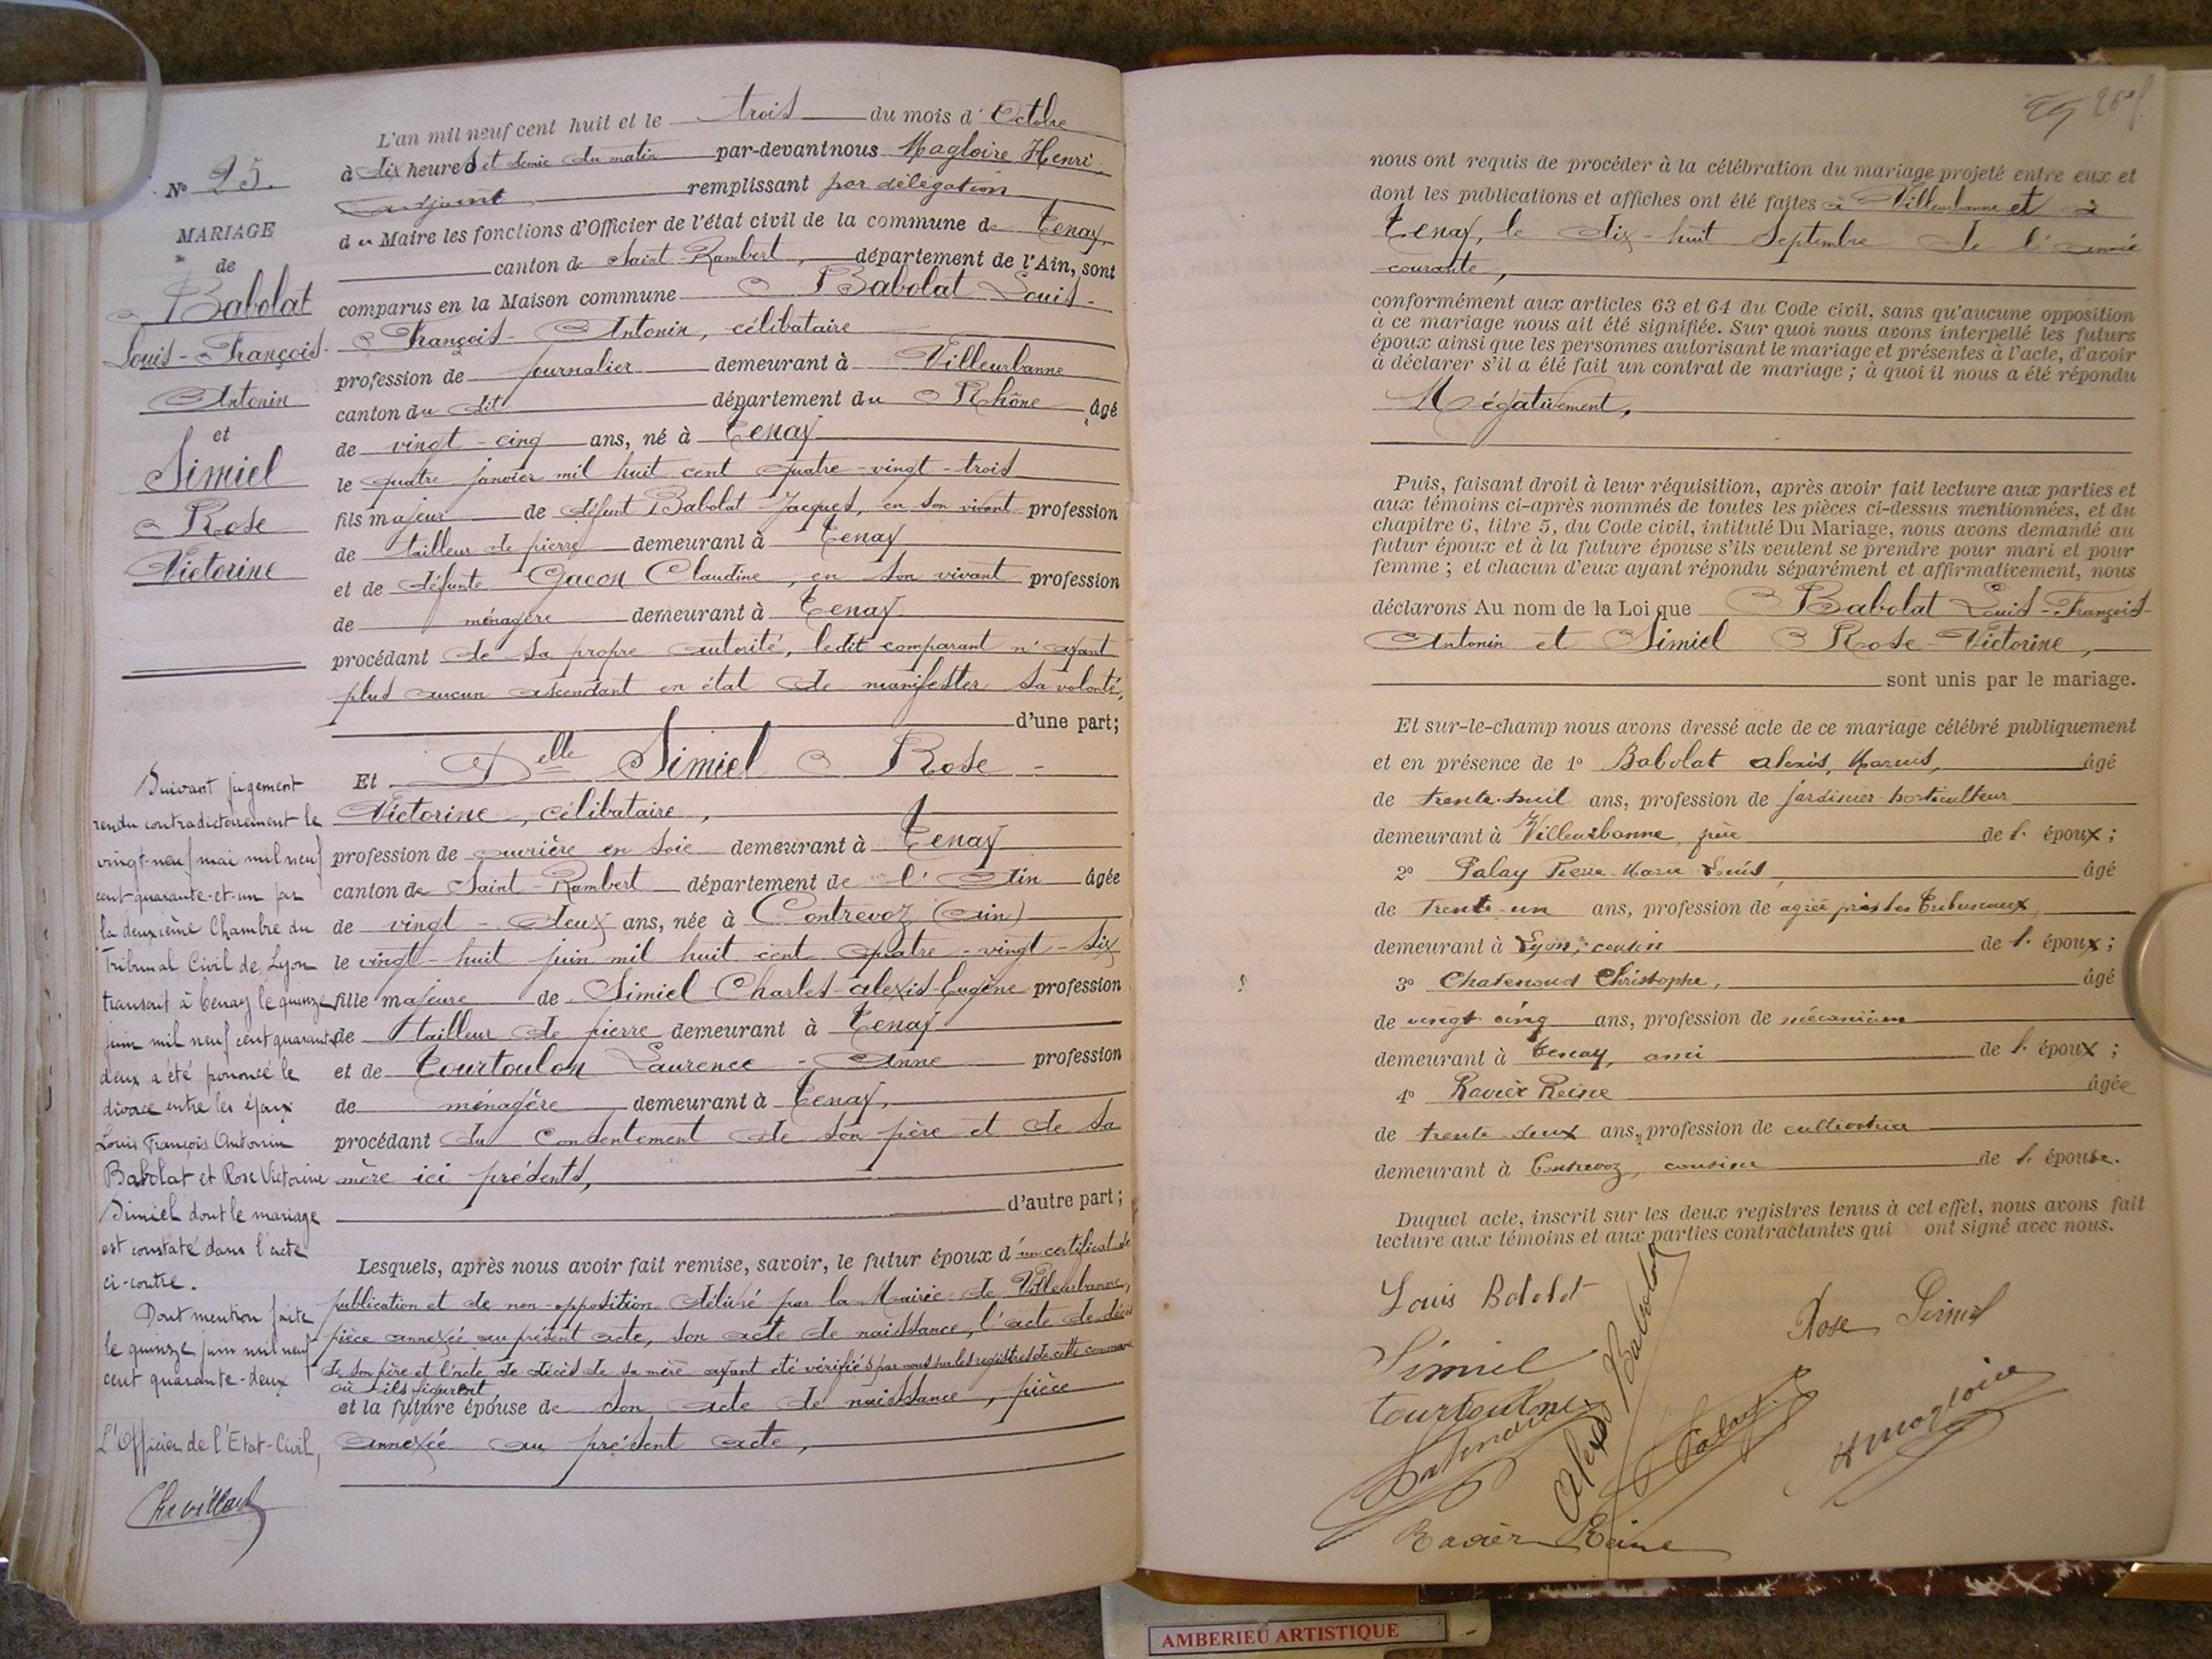 L'an mil neuf cent huit et le trois du mois d'Octobre
à dix heures et demie du matin par-devant nous Magloire Henri,
adjoint remplissant par délégation
du Maire les fonctions d'Officier de l'état civil de la commune de Tenay,
canton de Saint-Rambert, département de l'Ain, sont
comparus en la Maison commune Babolat Louis-
François-Antonin, célibataire
profession de journalier demeurant à Villeurbanne
canton du dit département du Rhône âgé
de vingt-cinq ans, né à Tenay
le quatre janvier mil huit cent quatre-vingt-trois
fils majeur de défunt Babolat Jacques, en son vivant profession
de tailleur de pierre demeurant à Tenay
et de défunte Gacon Claudine, en son vivant profession
de ménagère demeurant à Tenay
procédant de sa propre autorité, ledit comparant n'ayant
plus aucun ascendant en état de manifester sa volonté,
d'une part;
Et Delle Simiel Rose-
Victorine, célibataire,
profession de ouvrière en soie demeurant à Tenay
canton de Saint-Rambert département de l'Ain âgée
de vingt-deux ans, née à Contrevoz (Ain)
le vingt-huit juin mil huit cent quatre-vingt-six
fille majeure de Simiel Charles-Alexis-Eugène profession
de tailleur de pierre demeurant à Tenay
et de Tourtoulon Laurence-Anne profession
de ménagère demeurant à Tenay,
procédant du consentement de son père et de sa
mère ici présents,
d'autre part;
Lesquels, après nous avoir fait remise, savoir, le futur époux d'un certificat de
publication et de non-opposition délivré par la Mairie de Villeurbanne,
pièce annexée au présent acte, son acte de naissance, l'acte de décès
de son père et l'acte de décès de sa mère ayant été vérifiés par nous sur les registres de cette commune
où ils figurent,
et la future épouse de son acte de naissance, pièce
annexée au présent acte,
No 25.
MARIAGE
de
Babolat
Louis-François-
Antonin
et
Simiel
Rose
Victorine
Suivant jugement
rendu contradictoirement le
vingt-neuf mai mil neuf
cent quarante-et-un par
la deuxième Chambre du
Tribunal Civil de Lyon
transcrit à Tenay le quinze
juin mil neuf cent quarante
deux a été prononcé le
divorce entre les époux
Louis François Antonin
Babolat et Rose Victorine
Simiel dont le mariage
est constaté dans l'acte
ci-contre.
Dont mention faite
le quinze juin mil neuf
cent quarante-deux
L'Officier de l'Etat-Civil,
nous ont requis de procéder à la célébration du mariage projeté entre eux et
dont les publications et affiches ont été faites à Villeurbanne et à
Tenay, le dix-huit Septembre de l'année
courante,
conformément aux articles 63 et 64 du Code civil, sans qu'aucune opposition
à ce mariage nous ait été signifiée. Sur quoi nous avons interpellé les futurs
époux ainsi que les personnes autorisant le mariage et présentes à l'acte, d'avoir
à déclarer s'il a été fait un contrat de mariage; à quoi il nous a été répondu
Négativement.
Puis, faisant droit à leur réquisition, après avoir fait lecture aux parties et
aux témoins ci-après nommés de toutes les pièces ci-dessus mentionnées, et du
chapitre 6, titre 5, du Code civil, intitulé Du Mariage, nous avons demandé au
futur époux et à la future épouse s'ils veulent se prendre pour mari et pour
femme; et chacun d'eux ayant répondu séparément et affirmativement, nous
déclarons Au nom de la Loi que Babolat Louis-François-
Antonin et Simiel Rose-Victorine,
sont unis par le mariage.
Et sur-le-champ nous avons dressé acte de ce mariage célébré publiquement
et en présence de 1º Babolat Alexis, Marius, âgé
de trente-huit ans, profession de jardinier-horticulteur
demeurant à Villeurbanne, de l' époux;
2º Palay Pierre-Marie-Louis, âgé
de trente-un ans, profession de agréé près les Tribunaux,
demeurant à Lyon, cousin de l' époux;
3º Chatenoud Christophe, âgé
de vingt-cinq ans, profession de mécanicien
demeurant à Tenay, ami de l' époux;
4º Ravier Reine âgée
de trente-deux ans, profession de cultivatrice
demeurant à Contrevoz, cousine de l' épouse.
Duquel acte, inscrit sur les deux registres tenus à cet effet, nous avons fait
lecture aux témoins et aux parties contractantes qui ont signé avec nous.
Louis Babolat
Rose Simiel
Simiel
Alexis Babolat
Palay
H Magloire
Ravier Reine
AMBERIEU ARTISTIQUE